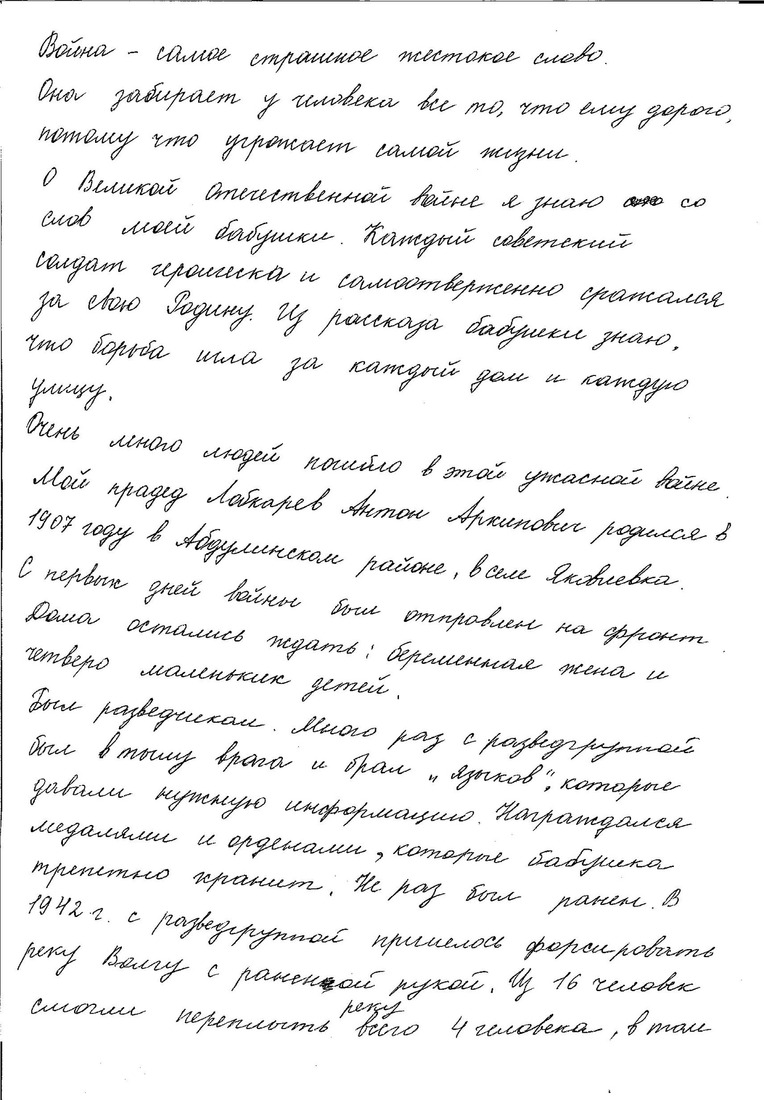 Война – самое страшное жестокое слово.
Она забирает у человека все то, что ему дорого,
потому что угрожает самой жизни.
О Великой отечественной войне я знаю со
слов моей бабушки. Каждый советский
солдат героически и самоотверженно сражался
за свою Родину. Из рассказа бабушки знаю,
что борьба шла за каждый дом и каждую
улицу.
Очень много людей погибло в этой ужасной войне.
Мой прадед Лобкарев Антон Архипович родился в
1907 году в Абдулинском районе, в селе Яковлевка.
С первых дней войны был отправлен на фронт.
Дома остались ждать: беременная жена и
четверо маленьких детей.
Был разведчиком. Много раз с разведгруппой
был в тылу врага и брал „языков", которые
давали нужную информацию. Награждался
медалями и орденами, которые бабушка
трепетно хранит. Не раз был ранен. В
1942 г. с разведгруппой пришлось форсировать
реку Волгу с раненой рукой. Из 16 человек
смогли переплыть реку всего 4 человека, в том